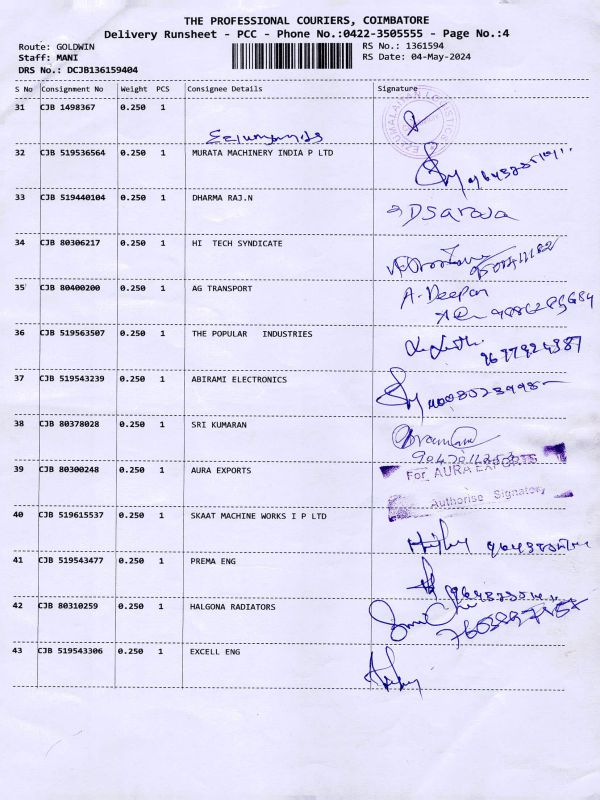 THE PROFESSIONAL COURIERS, COIMBATORE
Delivery Runsheet - PCC - Phone No.:0422-3505555 - Page No.:4
Route: GOLDWIN
RS No.: 1361594
Staff: MANI
RS Date: 04-May-2024
DRS No.: DCJB136159404
S No Consignment No Weight PCS Consignee Details Signature
31 CJB 1498367 0.250 1
32 CJB 519536564 0.250 1 MURATA MACHINERY INDIA P LTD
33 CJB 519440104 0.250 1 DHARMA RAJ.N
D Saroja
34 CJB 80306217 0.250 1 HI TECH SYNDICATE
35 CJB 80400200 0.250 1 AG TRANSPORT
A. Deepan
36 CJB 519563507 0.250 1 THE POPULAR INDUSTRIES
9677924387
37 CJB 519543239 0.250 1 ABIRAMI ELECTRONICS
38 CJB 80378028 0.250 1 SRI KUMARAN
39 CJB 80300248 0.250 1 AURA EXPORTS
For AURA EXPORTS
Authorise Signatory
40 CJB 519615537 0.250 1 SKAAT MACHINE WORKS I P LTD
41 CJB 519543477 0.250 1 PREMA ENG
42 CJB 80310259 0.250 1 HALGONA RADIATORS
43 CJB 519543306 0.250 1 EXCELL ENG